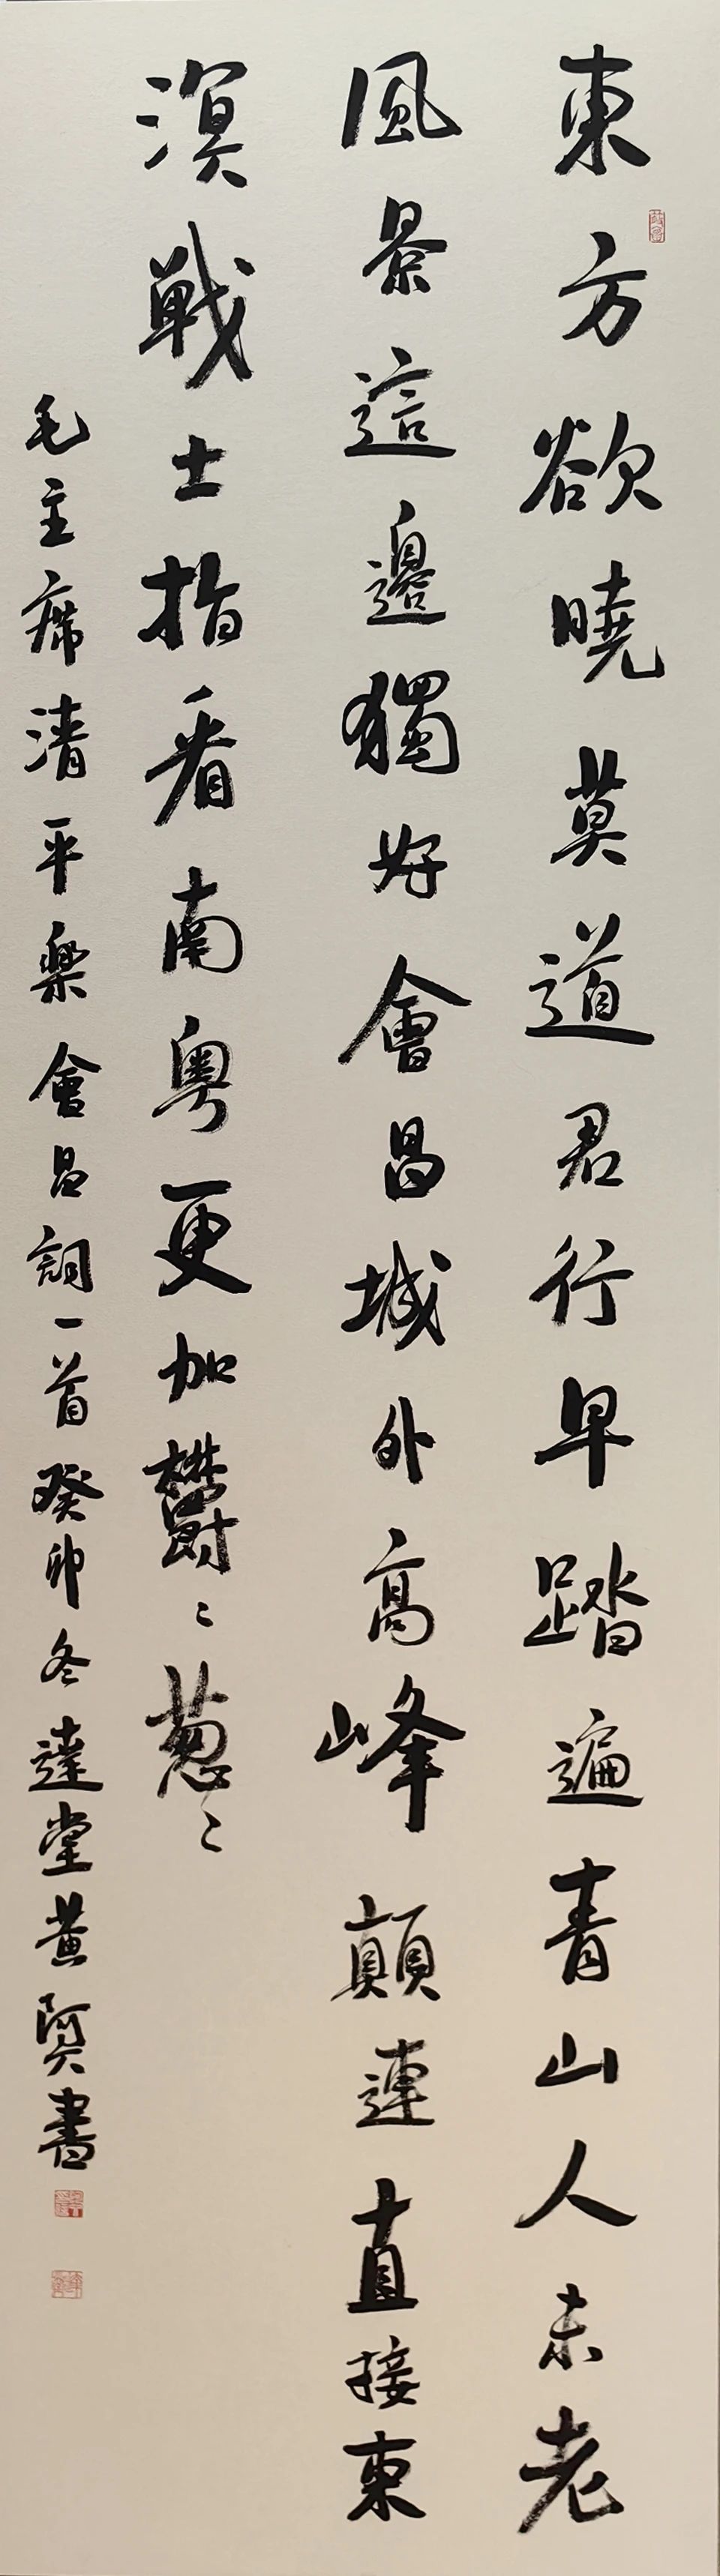 東方欲曉莫道君行早踏遍青山人未老
風景這邊獨好會昌城外高峰顛連直接東
溟戰士指看南粤更加鬱〻葱〻
毛主席清平樂會昌詞一首癸卯冬達堂黄寅書